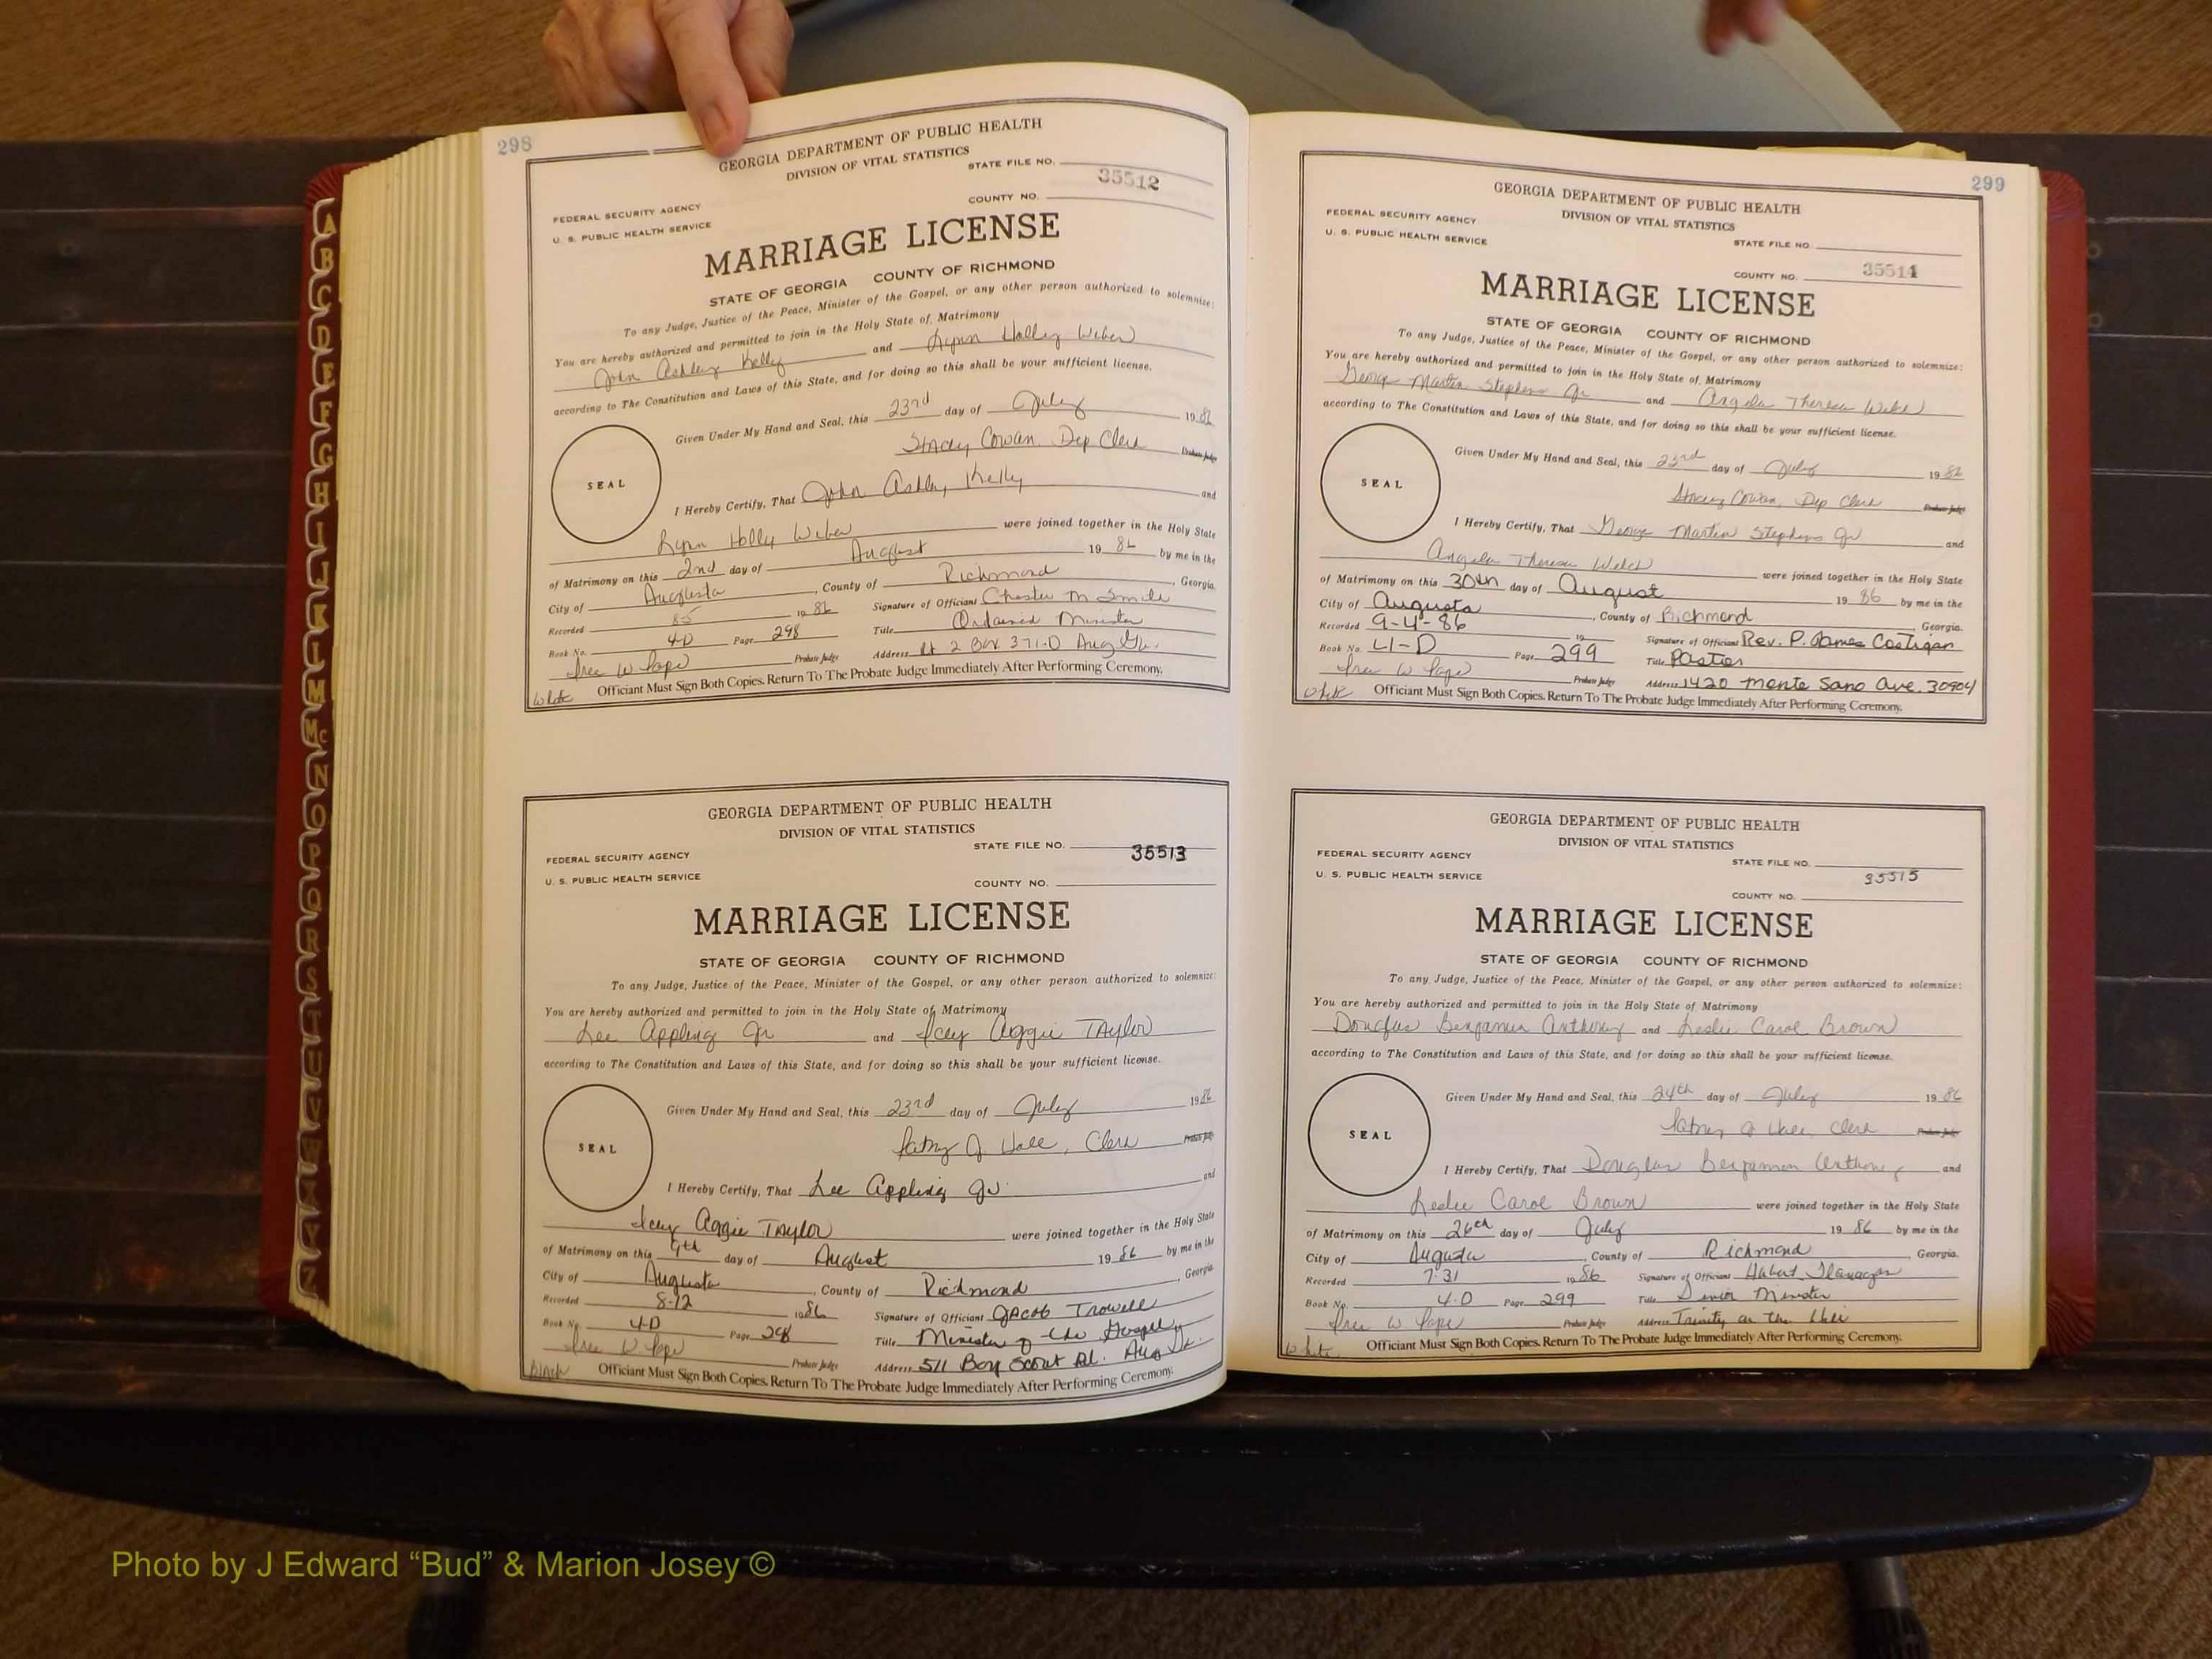 298
GEORGIA DEPARTMENT OF PUBLIC HEALTH
DIVISION OF VITAL STATISTICS
STATE FILE NO.
35512
COUNTY NO.
FEDERAL SECURITY AGENCY
U. S. PUBLIC HEALTH SERVICE
MARRIAGE LICENSE
STATE OF GEORGIA COUNTY OF RICHMOND
To any Judge, Justice of the Peace, Minister of the Gospel, or any other person authorized to solemnize:
You are hereby authorized and permitted to join in the Holy State of Matrimony
John Ashley Kelly and Lynn Holly Weber
according to The Constitution and Laws of this State, and for doing so this shall be your sufficient license.
Given Under My Hand and Seal, this 23rd day of July 1986
Stacey Cowan, Dep Clerk Probate Judge
SEAL
I Hereby Certify, That John Ashley Kelly and
Lynn Holly Weber were joined together in the Holy State
of Matrimony on this 2nd day of August 1986 by me in the
City of Augusta, County of Richmond, Georgia.
Recorded 8-5 1986 Signature of Officiant Chester M
Book No. 4-D Page 298 Title Ordained Minister
W Pope Probate Judge Address Rt 2 Box 371-D Aug Ga.
White Officiant Must Sign Both Copies. Return To The Probate Judge Immediately After Performing Ceremony.
GEORGIA DEPARTMENT OF PUBLIC HEALTH
DIVISION OF VITAL STATISTICS
STATE FILE NO. 35513
FEDERAL SECURITY AGENCY
U. S. PUBLIC HEALTH SERVICE
COUNTY NO.
MARRIAGE LICENSE
STATE OF GEORGIA COUNTY OF RICHMOND
To any Judge, Justice of the Peace, Minister of the Gospel, or any other person authorized to solemnize:
You are hereby authorized and permitted to join in the Holy State of Matrimony
Lee Appling Jr and Icey Aggie Taylor
according to The Constitution and Laws of this State, and for doing so this shall be your sufficient license.
Given Under My Hand and Seal, this 23rd day of July 1986
J Hall, Clerk Probate Judge
SEAL
I Hereby Certify, That Lee Appling Jr. and
Icey Aggie Taylor were joined together in the Holy State
of Matrimony on this 9th day of August 1986 by me in the
City of Augusta, County of Richmond, Georgia
Recorded 8-12 1986 Signature of Officiant Jacob Trowell
Book No. 4-D Page 298 Title Minister of the Gospel
W Pope Probate Judge Address 511 Boy Scout Rd. Aug Ga.
black Officiant Must Sign Both Copies. Return To The Probate Judge Immediately After Performing Ceremony.
299
GEORGIA DEPARTMENT OF PUBLIC HEALTH
DIVISION OF VITAL STATISTICS
FEDERAL SECURITY AGENCY
U. S. PUBLIC HEALTH SERVICE
STATE FILE NO
COUNTY NO. 35514
MARRIAGE LICENSE
STATE OF GEORGIA COUNTY OF RICHMOND
To any Judge, Justice of the Peace, Minister of the Gospel, or any other person authorized to solemnize:
You are hereby authorized and permitted to join in the Holy State of Matrimony
George Martin Stephens Jr and Angela Theresa Welch
according to The Constitution and Laws of this State, and for doing so this shall be your sufficient license.
Given Under My Hand and Seal, this 23rd day of July 1986
Stacey Cowan, Dep Clerk Probate Judge
SEAL
I Hereby Certify, That George Martin Stephens Jr and
Angela Theresa Welch were joined together in the Holy State
of Matrimony on this 30th day of August 1986 by me in the
City of Augusta, County of Richmond Georgia.
Recorded 9-4-86 19 Signature of Officiant Rev. P. James Costigan
Book No. 4-D Page 299 Title Pastor
W Pope Probate Judge Address 1420 Monte Sano Ave. 30904
White Officiant Must Sign Both Copies. Return To The Probate Judge Immediately After Performing Ceremony.
GEORGIA DEPARTMENT OF PUBLIC HEALTH
DIVISION OF VITAL STATISTICS
FEDERAL SECURITY AGENCY
U. S. PUBLIC HEALTH SERVICE
STATE FILE NO.
35515
COUNTY NO.
MARRIAGE LICENSE
STATE OF GEORGIA COUNTY OF RICHMOND
To any Judge, Justice of the Peace, Minister of the Gospel, or any other person authorized to solemnize:
You are hereby authorized and permitted to join in the Holy State of Matrimony
Douglas Benjamin Anthony and Leslie Carol Brown
according to The Constitution and Laws of this State, and for doing so this shall be your sufficient license.
Given Under My Hand and Seal, this 24th day of July 1986
J Hall, Clerk Probate Judge
SEAL
I Hereby Certify, That Douglas Benjamin Anthony and
Leslie Carol Brown were joined together in the Holy State
of Matrimony on this 26th day of July 1986 by me in the
City of Augusta, County of Richmond, Georgia.
Recorded 7-31 1986 Signature of Officiant Flanagan
Book No. 4-D Page 299 Title Senior Minister
W Pope Probate Judge Address Trinity on the Hill
White Officiant Must Sign Both Copies. Return To The Probate Judge Immediately After Performing Ceremony.
A B C D E F G H I J K L M Mc N O P Q R S T U V W X Y Z
Photo by J Edward “Bud” & Marion Josey ©